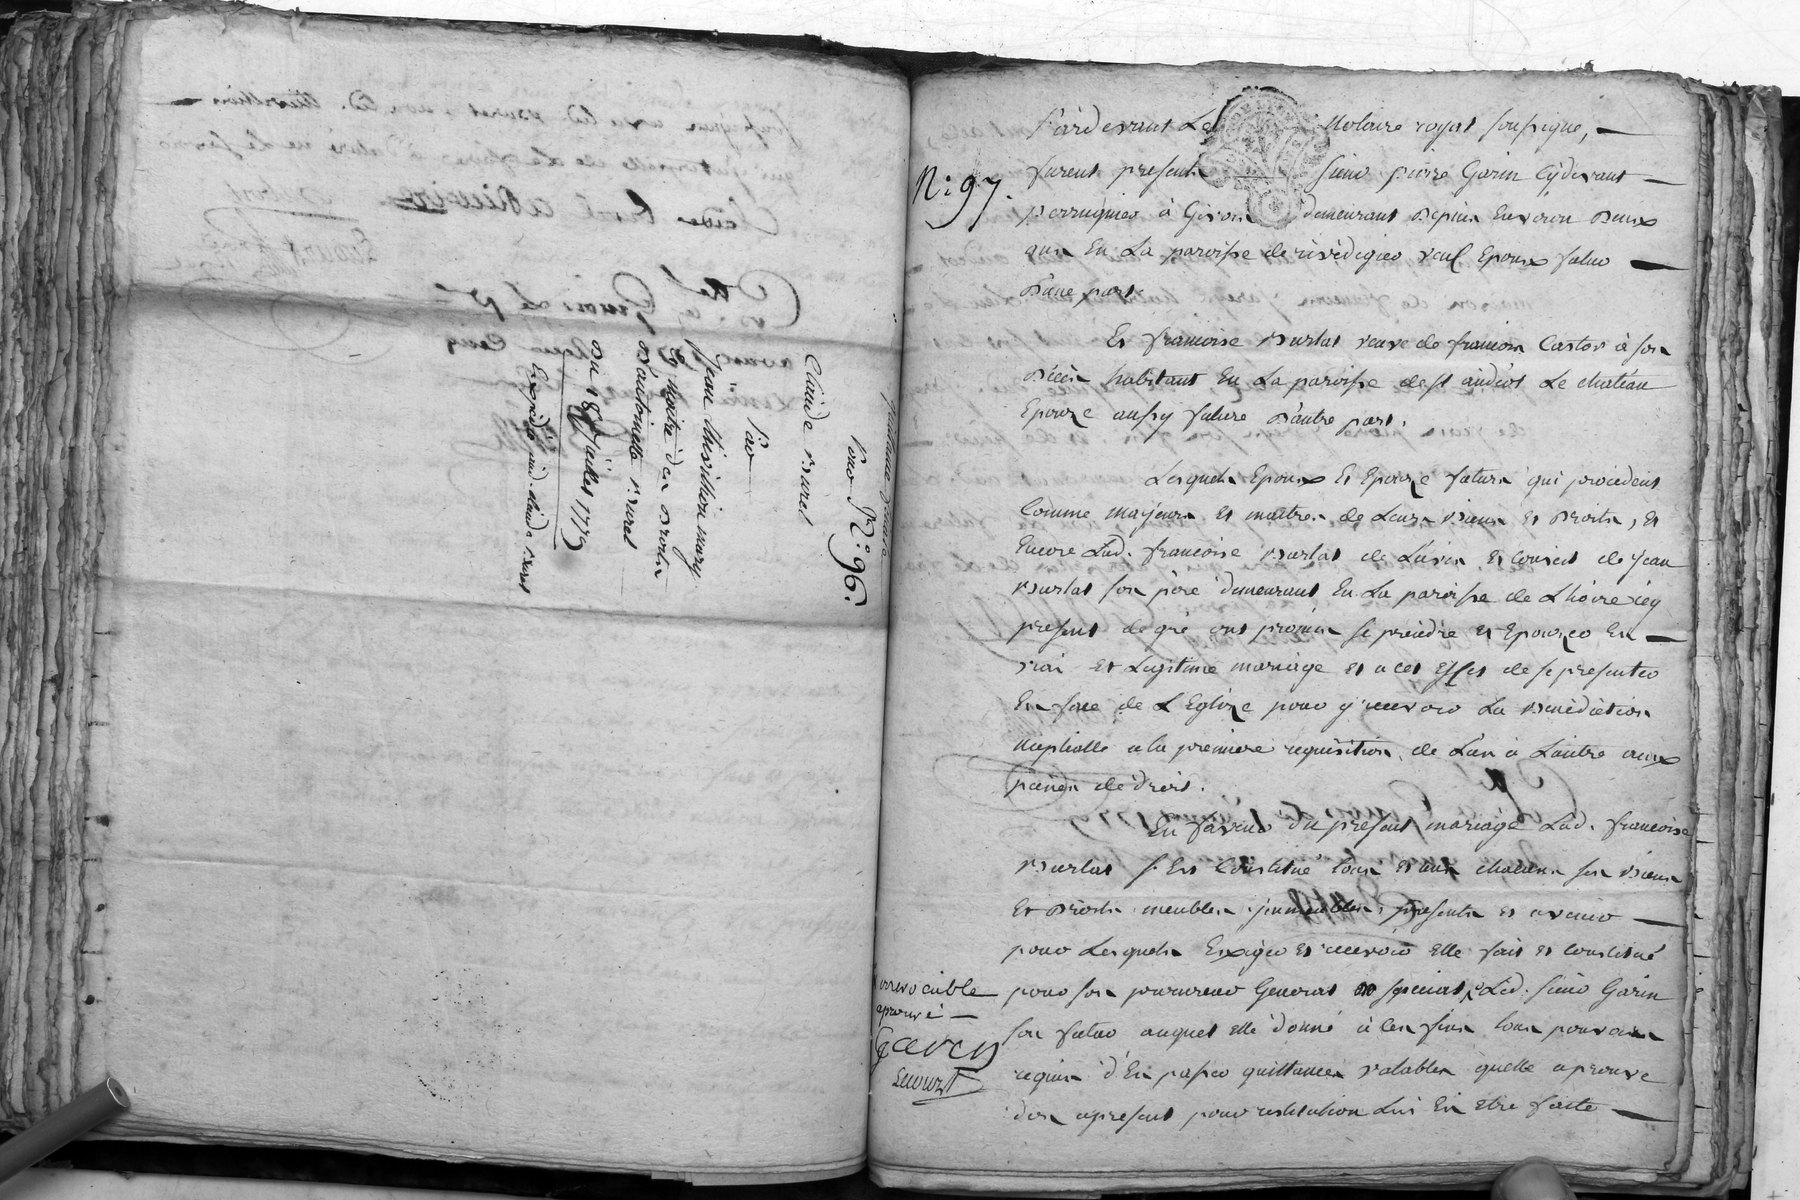 quittance finale
pour N.° 96.
Claude Burel
Par
Jeane Thivillion mary
et maitre des droits
d'antoinette Burel
Du 18 Juillet 1779
Expedié aud. claude Burel
Pardevant Le Notaire royal soussigné,
N.° 97.
furent presents sieur pierre Garin Cydevant
perruquier à Givors demeurant depuis Environ deux
ans En La paroisse de rivédegier veuf Epoux futur
D'une part.
Et francoise Burlat veuve de francois Castor à son
décès habitant En La paroisse de st andéol Le chateau
Epouze aussy future D'autre part.
Lesquels Epoux Et Epouze futurs qui procedent
Comme majeurs et maitres de Leurs Biens et Droits, et
Encore Lad. francoise Burlat de L'avis et Conseil de jean
Burlat son pere demeurant En La paroisse de icy
present de gré ont promis se prendre et Epouzer En
vrai et Legitime mariage et a cet Effet de se presenter
En face de L'Eglize pour y recevoir La Bénédiction
nuptialle a la premiere requisition de L'un à L'autre aux
peines de droit.
En faveur du present mariage Lad. francoise
Burlat s'Est Constitué tous et uns chacuns ses Biens
Et Droits meubles, immeubles, presents et avenir
pour Lesquels Exiger et recevoir elle fait et Constitué
pour son procureur General et special Led. sieur Garin
son futur auquel elle donne à ces fins tous pouvoirs
requis d'En passer quittances valables quelle aprouve
dors apresent pour restitution Lui En etre faite
irrevocable
aprouvé
Garin
Lecourt